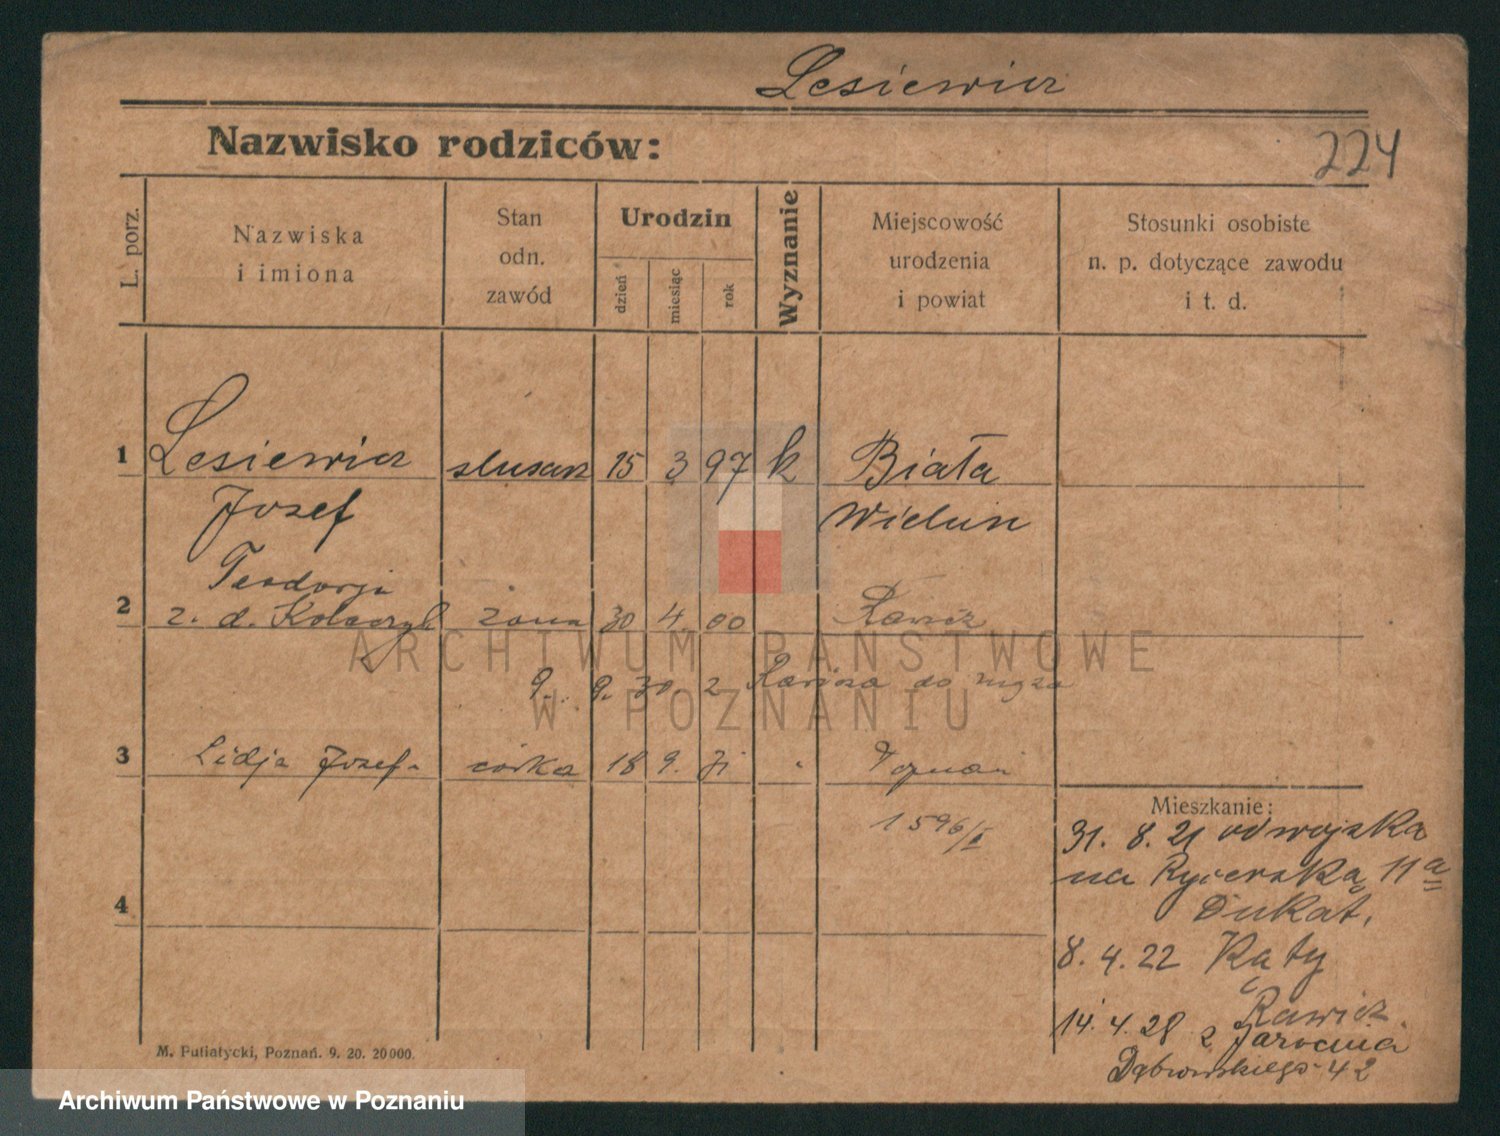 Lesiewicz
Nazwisko rodziców:
224
L. porz.
Nazwiska
i imiona
Stan
odn.
zawód
Urodzin
dzień
miesiąc
rok
Wyznanie
Miejscowość
urodzenia
i powiat
Stosunki osobiste
n. p. dotyczące zawodu
i t. d.
1 Lesiewicz ślusarz 15 3 97 k Biała
Józef Wieluń
Teodorja
2 z. d. żona 30 4. 00 Rawicz
9. 9. 30 z Rawicza do męża
3 Lidja Józef- córka 18 9. 31 " Poznań
1596/I
Mieszkanie:
31. 8. 21 od wojska
na Rycerska 11a
Dukat.
4
8. 4. 22 Kąty
Rawicz
14. 4. 28 z Jarocina
Dąbrowskiego 42
M. Putiatycki, Poznań. 9. 20. 20000.
ARCHIWUM PAŃSTWOWE
W POZNANIU
Archiwum Państwowe w Poznaniu